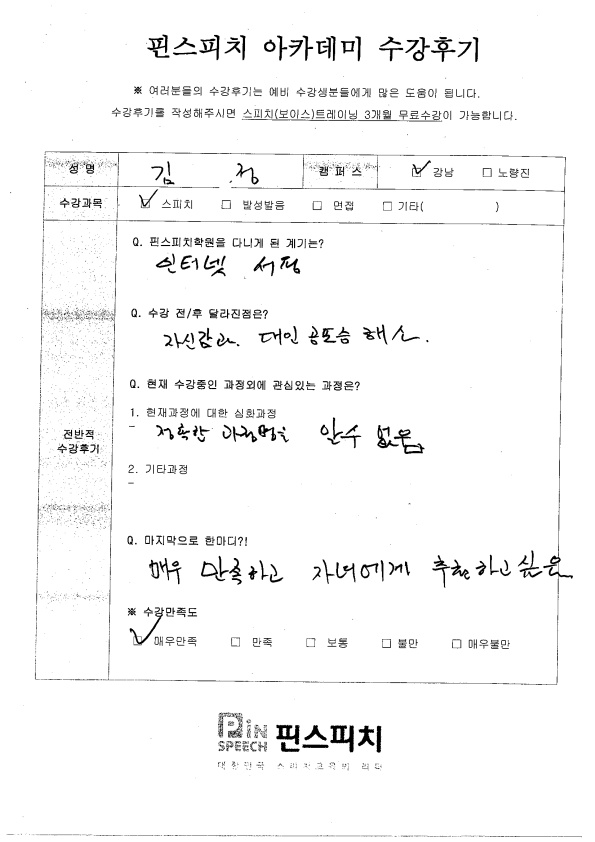 핀스피치 아카데미 수강후기
※ 여러분들의 수강후기는 예비 수강생분들에게 많은 도움이 됩니다.
수강후기를 작성해주시면 스피치(보이스)트레이닝 3개월 무료수강이 가능합니다.
성 명 김 정 캠 퍼 스 ☑ 강남 □ 노량진
수강과목 ☑ 스피치 □ 발성발음 □ 면접 □ 기타( )
Q. 핀스피치학원을 다니게 된 계기는?
인터넷 서핑
Q. 수강 전/후 달라진점은?
자신감과 대인 공포증 해소.
Q. 현재 수강중인 과정외에 관심있는 과정은?
1. 현재과정에 대한 심화과정
- 정확한 과정명을 알수 없음
2. 기타과정
-
전반적
수강후기
Q. 마지막으로 한마디?!
매우 만족하고 자녀에게 추천하고 싶은
※ 수강만족도
☑ 매우만족 □ 만족 □ 보통 □ 불만 □ 매우불만
PiN
SPEECH 핀스피치
대한민국 스피치교육의 리더